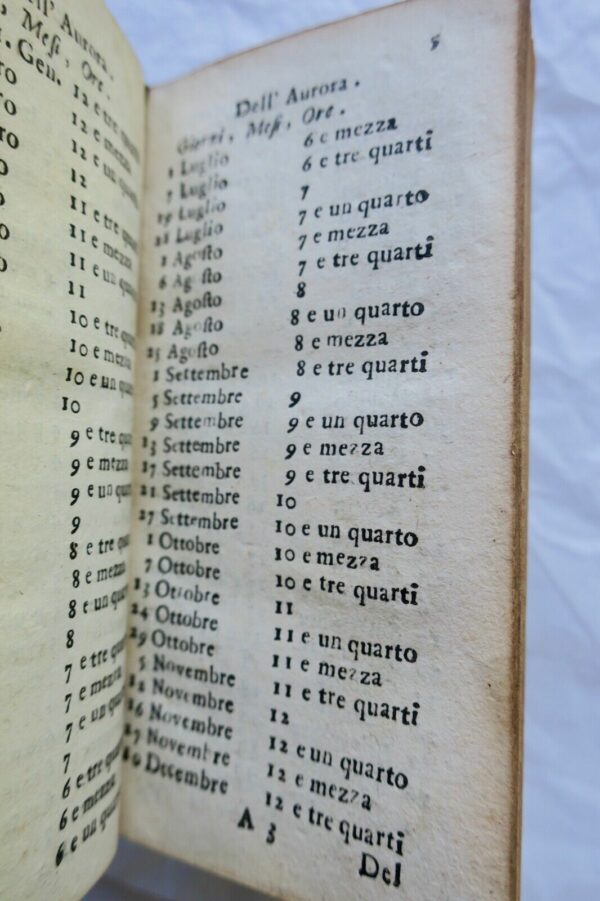 ll' Aurora.
Meſi, Ore.
Gen. 12 e tre
12 e mezza
12 e un
12
11 e tre
11 e mezza
11 e un
11
10 e tre
10 e mezza
10 e un
10
9 e tre
9 e mezza
9 e un
9
8 e tre
8 e mezza
8 e un
8
7 e tre
7 e mezza
7 e un
7
6 e tre
6 e mezza
6 e un
5
Dell' Aurora.
Giorni, Meſi, Ore.
1 Luglio 6 e mezza
7 Luglio 6 e tre quarti
Luglio 7
Luglio 7 e un quarto
1 Agoſto 7 e mezza
6 Agoſto 7 e tre quarti
13 Agoſto 8
18 Agoſto 8 e un quarto
25 Agoſto 8 e mezza
1 Settembre 8 e tre quarti
5 Settembre 9
9 Settembre 9 e un quarto
13 Settembre 9 e mezza
17 Settembre 9 e tre quarti
21 Settembre 10
27 Settembre 10 e un quarto
1 Ottobre 10 e mezza
7 Ottobre 10 e tre quarti
13 Ottobre 11
24 Ottobre 11 e un quarto
29 Ottobre 11 e mezza
5 Novembre 11 e tre quarti
12 Novembre 12
16 Novembre 12 e un quarto
27 Novembre 12 e mezza
Decembre 12 e tre quarti
A 3
Del